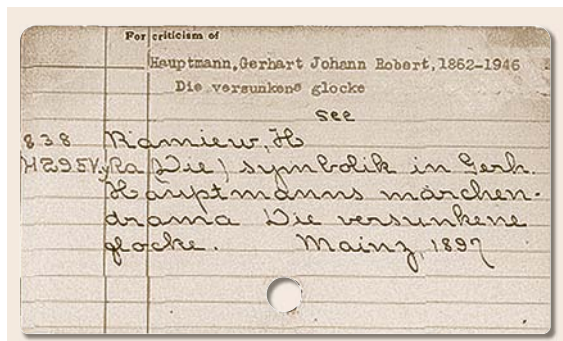 For criticism of
Hauptmann,Gerhart Johann Robert,1862-1946
Die versunkene glocke
see
838 Ramiew, H
H295Vy Ra (Die) symbolik in Gerh.
Hauptmanns märchen-
drama Die versunkene
glocke. Mainz, 1897